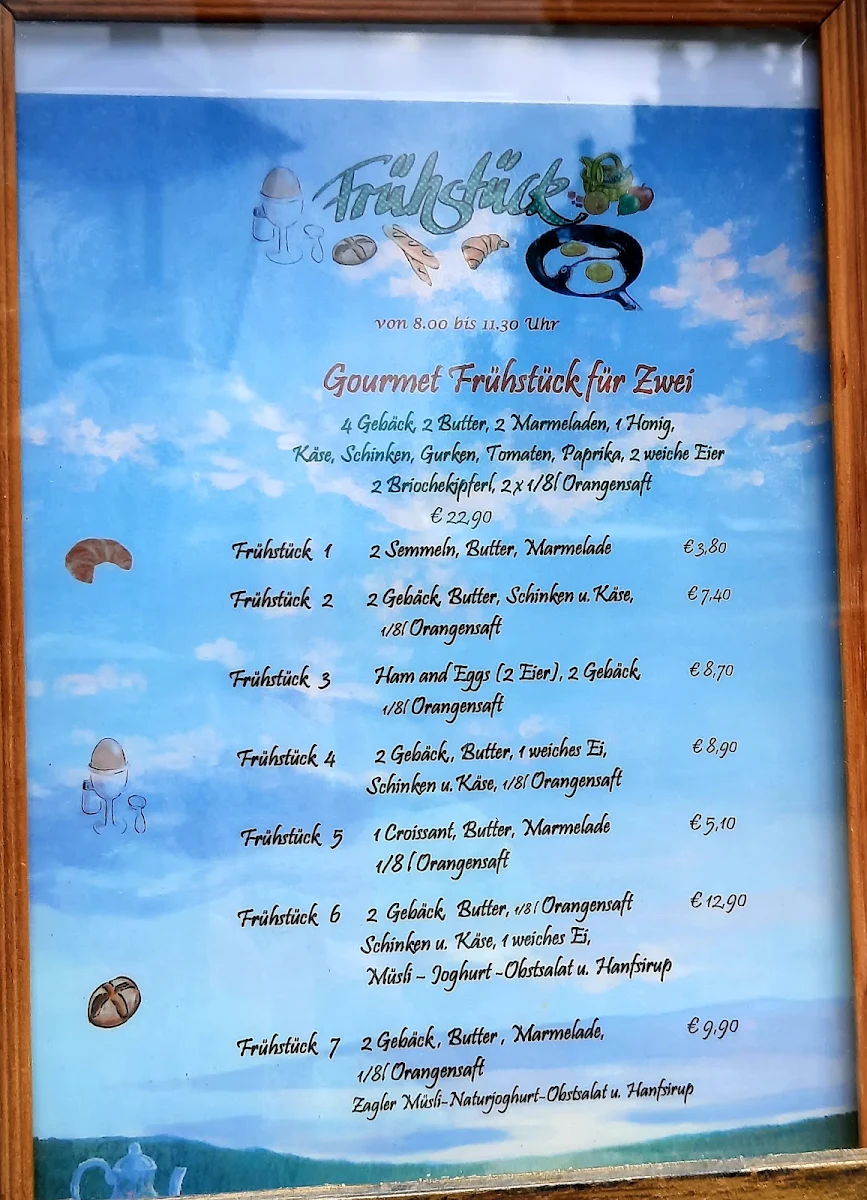 Frühstück
von 8.00 bis 11.30 Uhr
Gourmet Frühstück für Zwei
4 Gebäck, 2 Butter, 2 Marmeladen, 1 Honig,
Käse, Schinken, Gurken, Tomaten, Paprika, 2 weiche Eier
2 Briochekipferl, 2 x 1/8l Orangensaft
€ 22,90
Frühstück 1 2 Semmeln, Butter, Marmelade € 3,80
Frühstück 2 2 Gebäck, Butter, Schinken u. Käse, € 7,40
1/8l Orangensaft
Frühstück 3 Ham and Eggs (2 Eier), 2 Gebäck, € 8,70
1/8l Orangensaft
Frühstück 4 2 Gebäck,, Butter, 1 weiches Ei, € 8,90
Schinken u. Käse, 1/8l Orangensaft
Frühstück 5 1 Croissant, Butter, Marmelade € 5,10
1/8 l Orangensaft
Frühstück 6 2 Gebäck, Butter, 1/8l Orangensaft € 12,90
Schinken u. Käse, 1 weiches Ei,
Müsli – Joghurt -Obstsalat u. Hanfsirup
Frühstück 7 2 Gebäck, Butter, Marmelade, € 9,90
1/8l Orangensaft
Zagler Müsli-Naturjoghurt-Obstsalat u. Hanfsirup